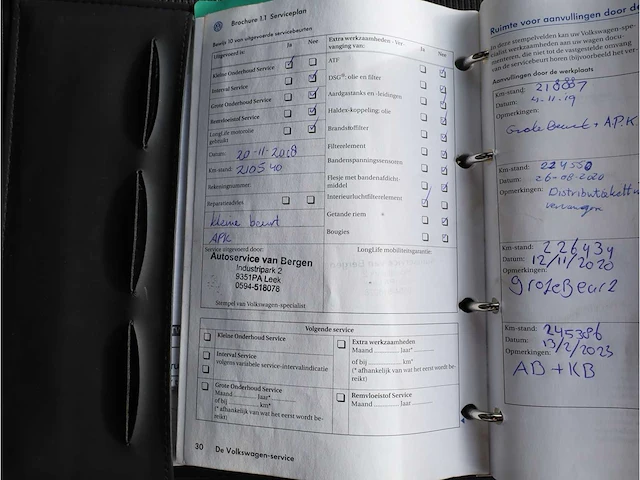 Brochure 1.1 Serviceplan
Bewijs 10 van uitgevoerde servicebeurten
Uitgevoerd is:
Ja
Nee
Kleine Onderhoud Service
Interval Service
Grote Onderhoud Service
Remvloeistof Service
LongLife motorolie
gebruikt
Datum: 20-11-2018
Km-stand: 210540
Rekeningnummer:
Reparatieadvies
kleine beurt
APK
Service uitgevoerd door:
Autoservice van Bergen
Industripark 2
9351PA Leek
0594-518078
Stempel van Volkswagen-specialist
Extra werkzaamheden - Ver-
vanging van:
Ja
Nee
ATF
DSG®: olie en filter
Aardgastanks en -leidingen
Haldex-koppeling: olie
Brandstoffilter
Filterelement
Bandenspanningssensoren
Flesje met bandenafdicht-
middel
Interieurluchtfilterelement
Getande riem
Bougies
LongLife mobiliteitsgarantie:
Volgende service
Kleine Onderhoud Service
Interval Service
volgens variabele service-intervalindicatie
Grote Onderhoud Service
Maand Jaar*
of bij km*
(* afhankelijk van wat het eerst wordt be-
reikt)
Extra werkzaamheden
Maand Jaar*
of bij km*
(* afhankelijk van wat het eerst wordt be-
reikt)
Remvloeistof Service
Maand Jaar
30 De Volkswagen-service
Ruimte voor aanvullingen door de
In deze stempelvelden kan uw Volkswagen-spe-
cialist werkzaamheden aan uw wagen docu-
menteren, die niet tot de vastgestelde omvang
van de servicebeurt horen (bijvoorbeeld het ver-
Aanvullingen door de werkplaats
Km-stand: 218887
Datum: 4-11-19
Opmerkingen:
Grote Beurt + A.P.K
Km-stand: 224550
Datum: 26-08-2020
Opmerkingen: Distributieketti
vervangen
Km-stand: 226434
Datum: 12/11/2020
Opmerkingen:
grote Beurt
Km-stand: 245386
Datum: 13/2/2023
Opmerkingen:
AB + KB